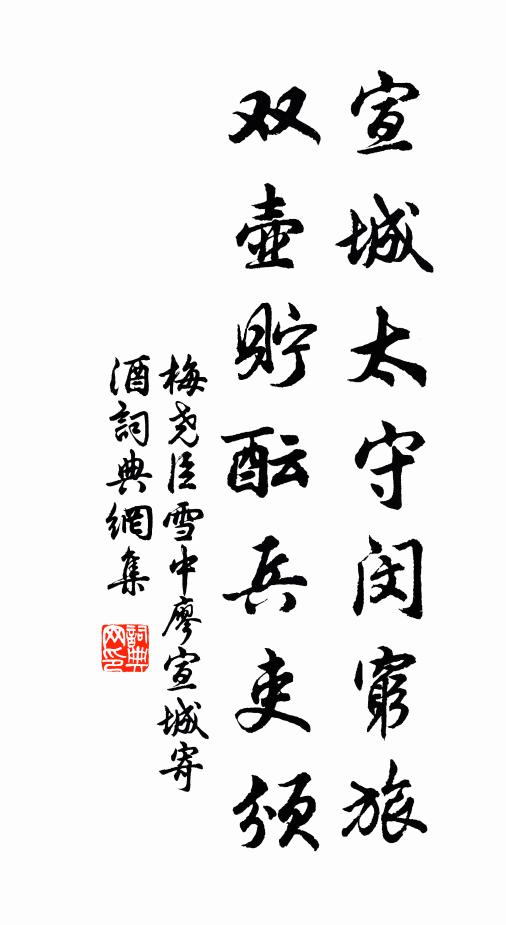 宣城太守闵窮旅
双壺貯酝兵吏颁
梅尧臣雪中廖宣城寄
酒詞典網集
詞典網印